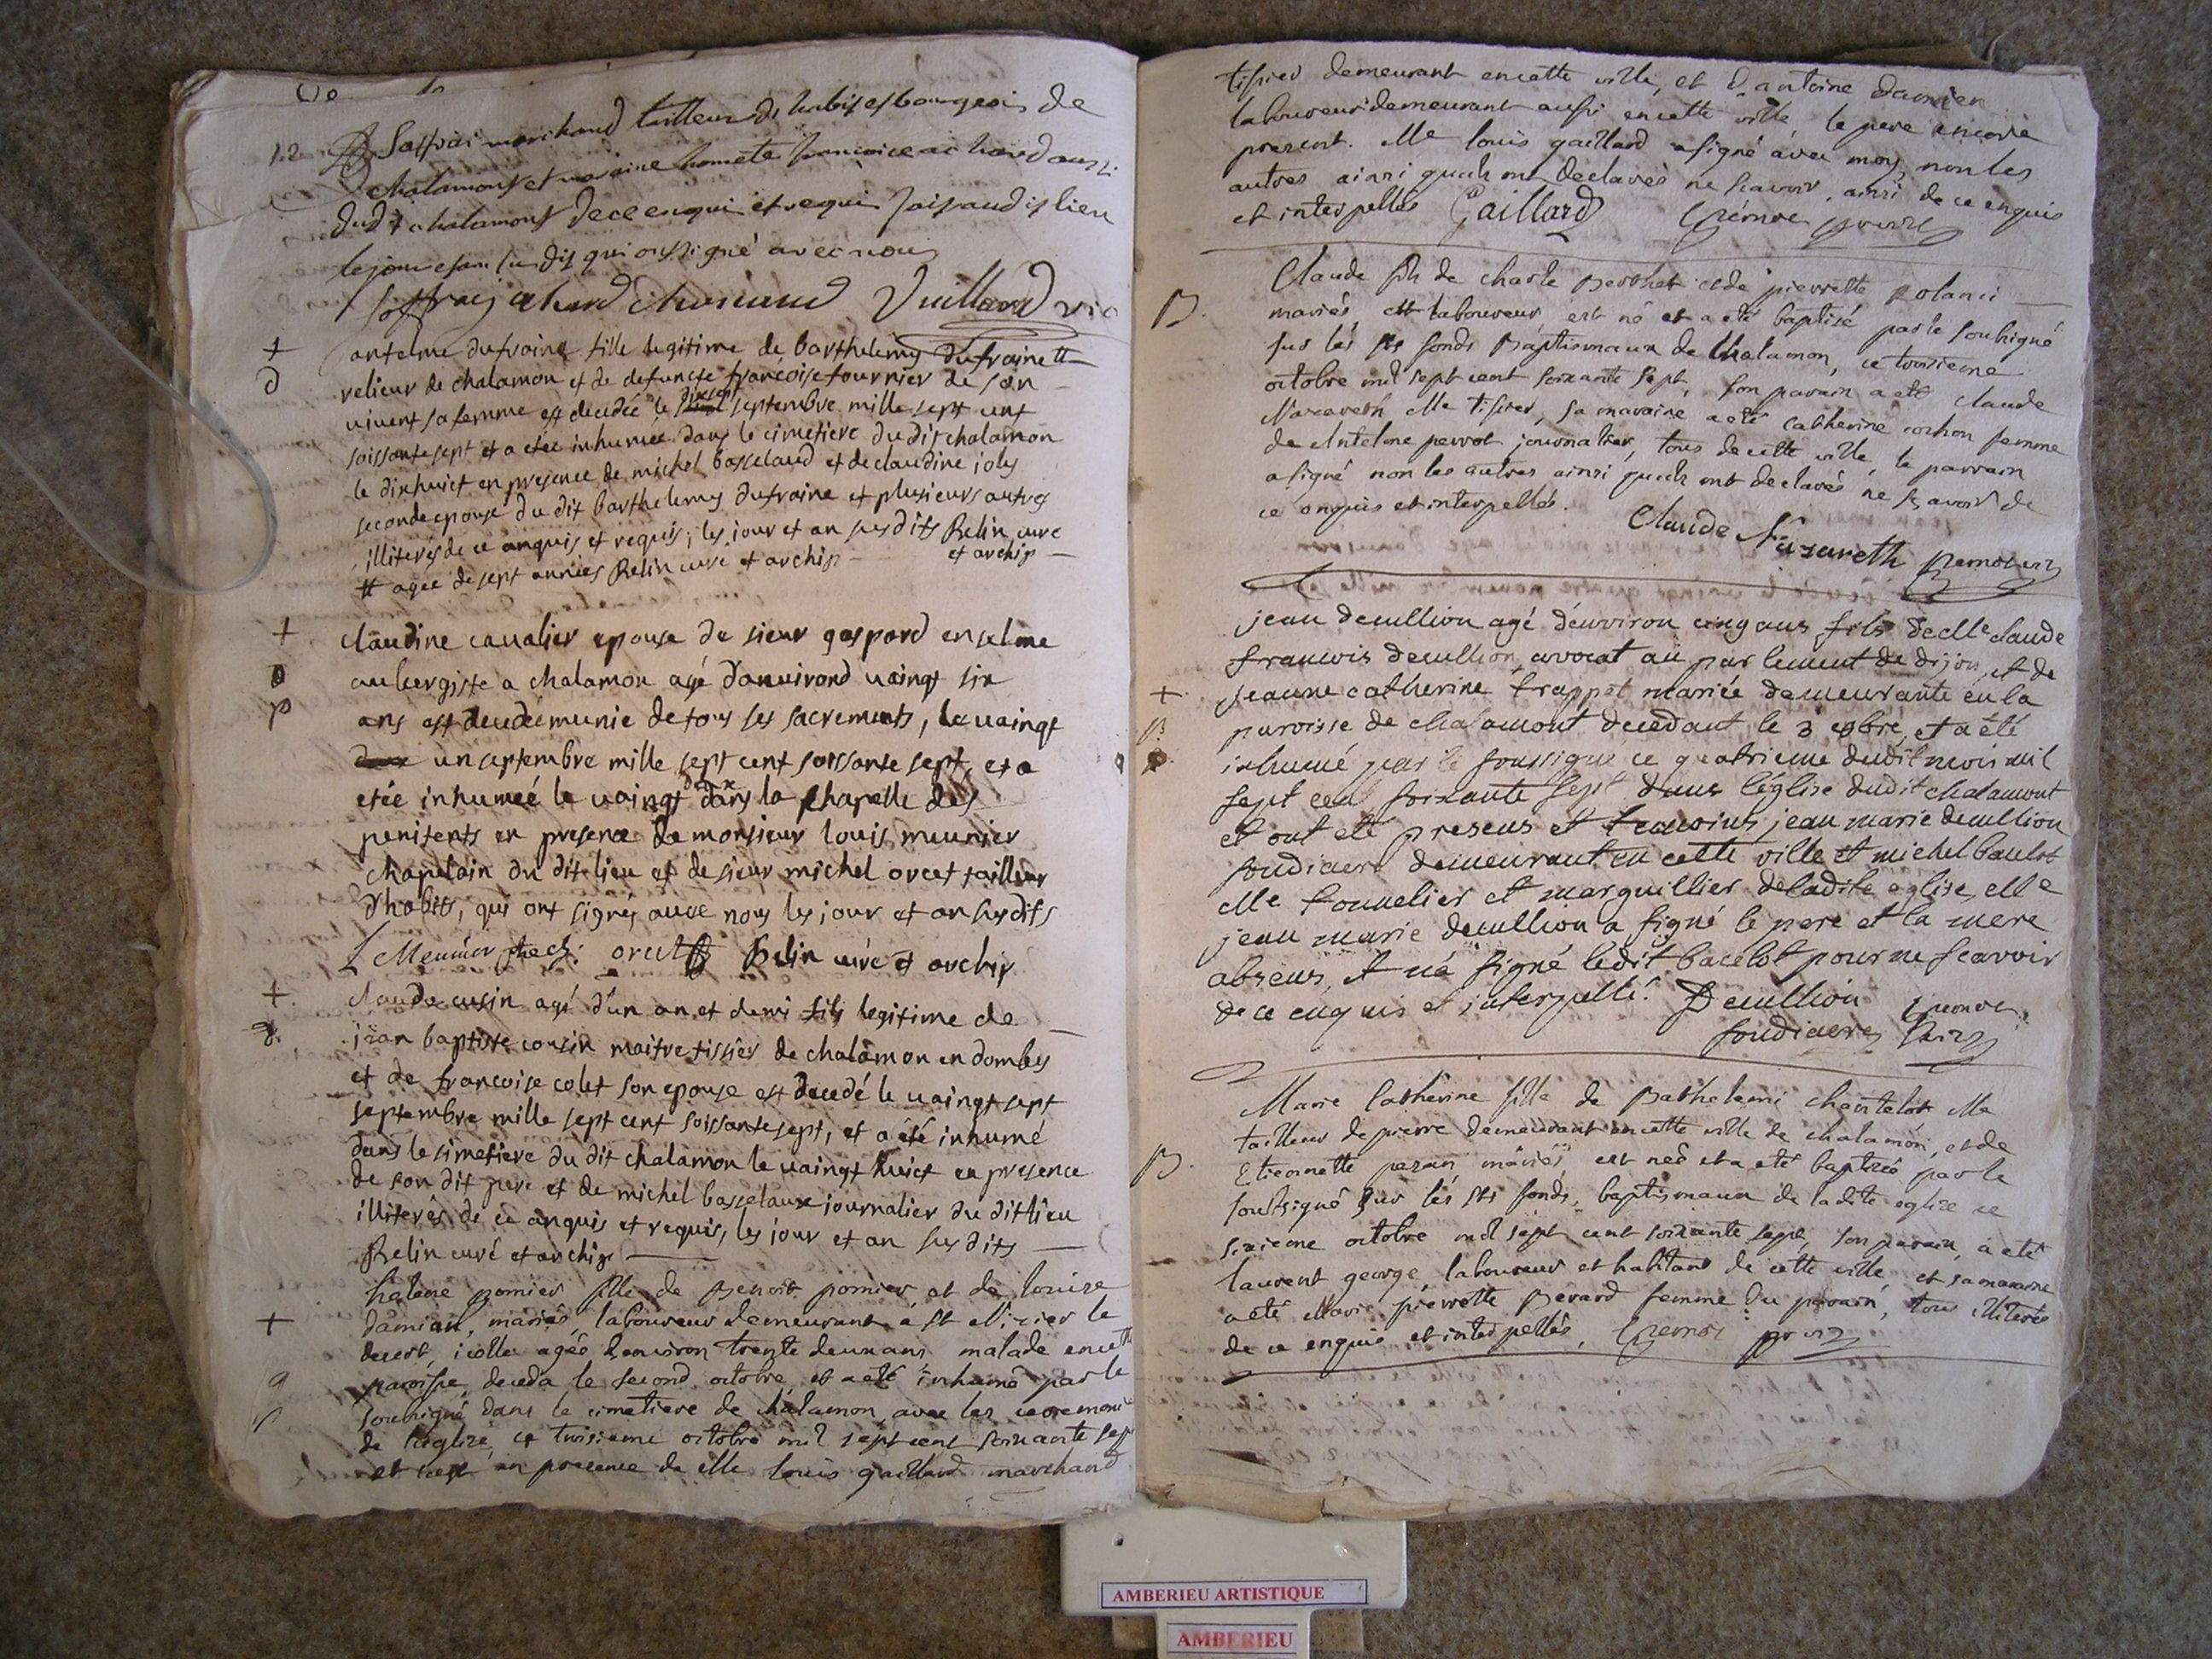 12
marchand tailleur d'habis et bourgeois de
chalamont et maraine honnete francoise achard aussi
dudt chalamont de ce enqui et requi fais audis lieu
le jour et an susdis qui ons signé avec nous
achard Vuillard vic
+ antelme dufraine fille legitime de barthelemy dufraine #
d relieur de chalamon et de defuncte francoise fournier de son
vivent sa femme est decedée le dixsept septembre mille sept cent
soissante sept et a etée inhumée dans le cimetiere du dit chalamon
le dixhuict en presence de michel basselaud et de claudine joly
seconde epouse du dit barthelemy dufraine et plusieurs autres
illiterés de ce anquis et requis, les jour et an susdits Relin curé
# agee de sept années Relin curé et archip et archip
+ claudine cavalier epouse de sieur gaspard enselme
aubergiste a chalamon agé d'anvirond vaingt six
p ans est decedée munie de tous ses sacrements, le vaingt
un septembre mille sept cent soissante sept, et a
etée inhumée le vaingt deux dans la chapelle des
penitents en presence de monsieur louis meunier
chapelain du dit lieu et de sieur michel orcet tailleur
d'habits, qui ont signés avec nous les jour et an susdits
L Meunier orcet Relin curé et archip
+. claude cusin agé d'un an et demi fils legitime de
jean baptiste cousin maitre tissier de chalamon en dombes
et de francoise colet son epouse est decedé le vaingt sept
septembre mille sept cent soissante sept, et a été inhumé
dans le simetiere du dit chalamon le vaingt huict en presence
de son dit pere et de michel basselaux journalier du dit lieu
illiterés de ce anquis et requis, les jour et an susdits
Relin curé et archip
helene pomier fille de Benoit pomier, et de louise
+ damian, mariés, laboureur demeurant a St Nizier le
desert, icelle agée d'environ trente deux ans malade en cette
paroisse, deceda le second octobre et a eté inhumé par le
soubsigné dans le cimetiere de chalamon, avec les ceremonie
de l'eglize, ce troisieme octobre mil sept cent soixante sept
et c'est en presence de Me louis gaillard marchand
tissier demeurant en cette ville, et d'antoine damien
laboureur demeurant aussi en cette ville, le pere encore
present. Me louis gaillard a signé avec moy, non les
autres ainsi qu'ils ont declarés ne scavoir, ainsi de ce enquis
et interpellés Gaillard
Claude fils de charle Berthet et de pierrette Rolani
B. mariés, et laboureur, est né et a eté baptisé par le soubsigné
sur lés sts fonds Baptismaux de Chalamon, ce troisieme
octobre mil sept cent soixante sept, son parain a eté claude
Nazareth Me tissier, sa maraine a eté catherine cochon femme
de Antelme perrot, journalier, tous de cette ville, le parrain
a signé non les autres ainsi qu'ils ont declarés ne scavoir de
ce enquis et interpellés. Claude Nazareth
jean decullion agé d'environ cinq ans, fils de Me claude
francois decullion, avocat au parlement de dijon, et de
+ jeanne catherine frappet mariée demeurante en la
B paroisse de chalamont decedant le 3 8bre, et a été
inhumé par le soussigné ce quatrieme dudit mois mil
sept cent soixante sept dans l'église dudit chalamont
et ont eté presens et temoins jean marie decullion
foudiaere demeurant en cette ville et michel bacelot
Me tonnelier et marguillier de ladite eglise, Me
jean marie decullion a signé le pere et la mere
absens, et n'a signé ledit bacelot pour ne scavoir
de ce enquis et interpellé. Decullion
foudiaere
Marie Catherine fille de Bathelemi chantelot Me
tailleur de pierre demeurant en cette ville de chalamon, et de
B. Etiennette peran mariés est neé et a eté baptizeé par le
soubsigné sur lés sts fonds, baptismaux de ladite eglize ce
sixieme octobre mil sept cent soixante sept, son parain, a eté
laurent george, laboureur et habitant de cette ville et sa maraine
a eté Marie pierrette Berard femme du parain, tous illiterés
de ce enquis et interpellés,
AMBERIEU ARTISTIQUE
AMBERIEU